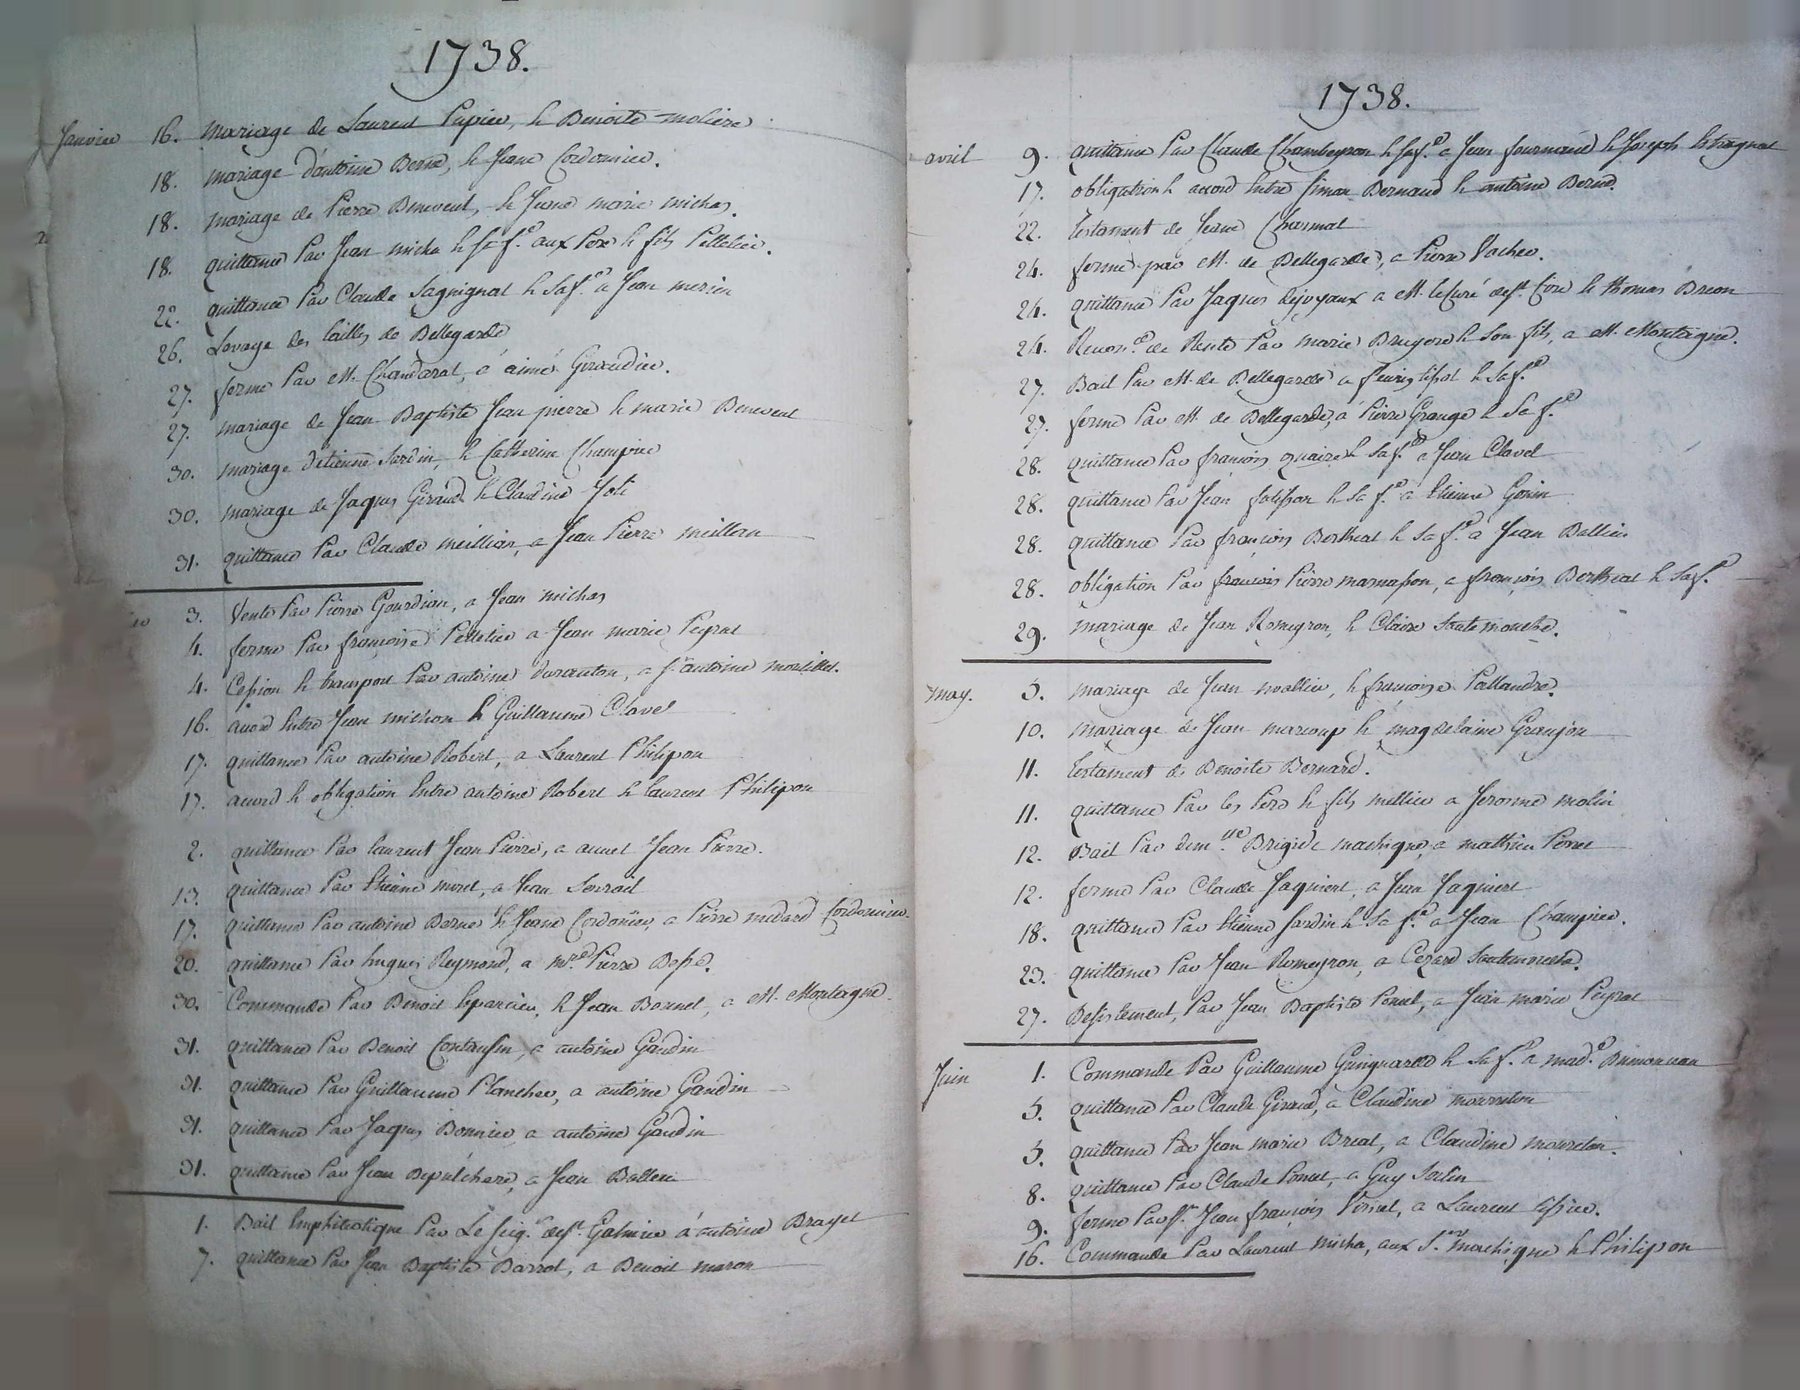 1738.
Janvier 16. Mariage de Laurent Papier, & Benoite moliere
18. mariage d'antoine Berne, & Jeane Cordonnier.
18. mariage de Pierre Benevent, & Jeane marie michas.
18. quittance Par Jean micha & sa f.e aux Pere & fils Pelletier.
22. quittance Par Claude Sagnignat & sa f.e a Jean merieu
26. Levage des tailles de Bellegarde
27. ferme Par M. Chandarat, a aimé Giraudier.
27. mariage de Jean Baptiste Jean pierre & marie Benevent
30. mariage d'etienne Jardin, & Catherine Champier
30. mariage de Jaques Giraud & Claudine Joli
31. quittance Par Claude meillier, a Jean Pierre meilleru
3. Vente Par Pierre Gourdian, a Jean michas
4. ferme Par françoise Pelletier a Jean marie Peyrat
4. Cession & transport Par antoine duranton, a s.r antoine
16. acord Entre Jean michon & Guillaume Clavel
17. quittance Par antoine Robert, a Laurent Philipon
17. acord & obligation Entre antoine Robert & laurent Philipon
2. quittance Par laurent Jean Pierre, a annet Jean Pierre.
13. quittance Par Etienne moret, a Jean
17. quittance Par antoine Berne & Jeane Cordonier, a Pierre medard Cordonnier
20. quittance Par hugues Reymond, a m.re Pierre Besse.
30. Commande Par Benoit & Jean Bonnet, a M. Montagne.
31. quittance Par Benoit a antoine Gaudin
31. quittance Par Guillaume Planchee, a antoine Gaudin
31. quittance Par Jaques Bonnier, a antoine Gaudin
31. quittance Par Jean Depulchere, a Jean
1. Bail Emphiteotique Par Le Seig.r de St. Galmier a antoine Brayet
7. quittance Par Jean Baptiste Barrot, a Benoit maron
1738.
avril 9. quittance Par Claude Chambeyron & sa f.e a Jean fournand & Joseph
17. obligation & acord Entre simon Bernard & antoine Berne.
22. testament de Jeane Charmat
24. ferme par M. de Bellegarde, a Pierre Vacher.
24. quittance Par Jaques dejoyaux a M. le Curé de St. Cire & thomas Breon
24. de Rente Par marie Bruyere & son fils, a M. Montagne.
27. Bail Par M. de Bellegarde a fleury tissot & sa f.e
27. ferme Par M. de Bellegarde, a Pierre Grange & sa f.e
28. quittance Par françois & sa f.e a Jean Clavel
28. quittance Par Jean & sa f.e a Etienne Gonin
28. quittance Par françois Bertheat & sa f.e a Jean
28. obligation Par françois Pierre marnasson, a françois Bertheat & sa f.e
29. mariage de Jean Romeyron, & Claire Sautemouche.
may. 5. mariage de Jean & françoise Pallandre.
10. mariage de Jean marcoup & magdelaine Granjon
11. testament de Benoite Bernard.
11. quittance Par les Pere & fils mellier a Jerosme molin
12. Bail Par dem.lle Brigide machigne, a mathieu Poncet
12. ferme Par Claude Jaquient, a Jean Jaquient
18. quittance Par Etienne Jardin & sa f.e a Jean Champier.
23. quittance Par Jean Romeyron, a Cezard Sautemouche.
27. Desistement, Par Jean Baptiste Poncet, a Jean marie Peyrat
Juin 1. Commande Par Guillaume Guingnarde & sa f.e a mad.e
5. quittance Par Claude Giraud, a Claudine mourelon
5. quittance Par Jean marie Breat, a Claudine mourelon.
8. quittance Par Claude Poncet, a Guy
9. ferme Par s.r Jean françois Poncet, a Laurent tissier.
16. Commande Par Laurent micha, aux S.rs machigne & Philipon